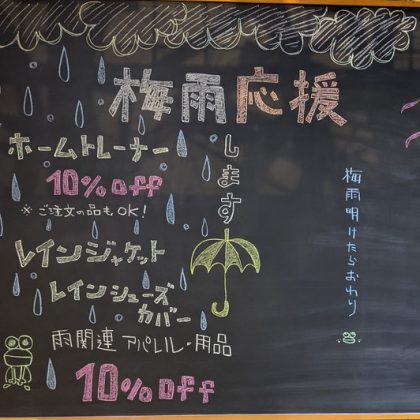 梅雨応援
します
ホームトレーナー
10%off
※ご注文の品もOK!
レインジャケット
レインシューズ
カバー
雨関連 アパレル・用品
10%off
梅雨明けたらおわり